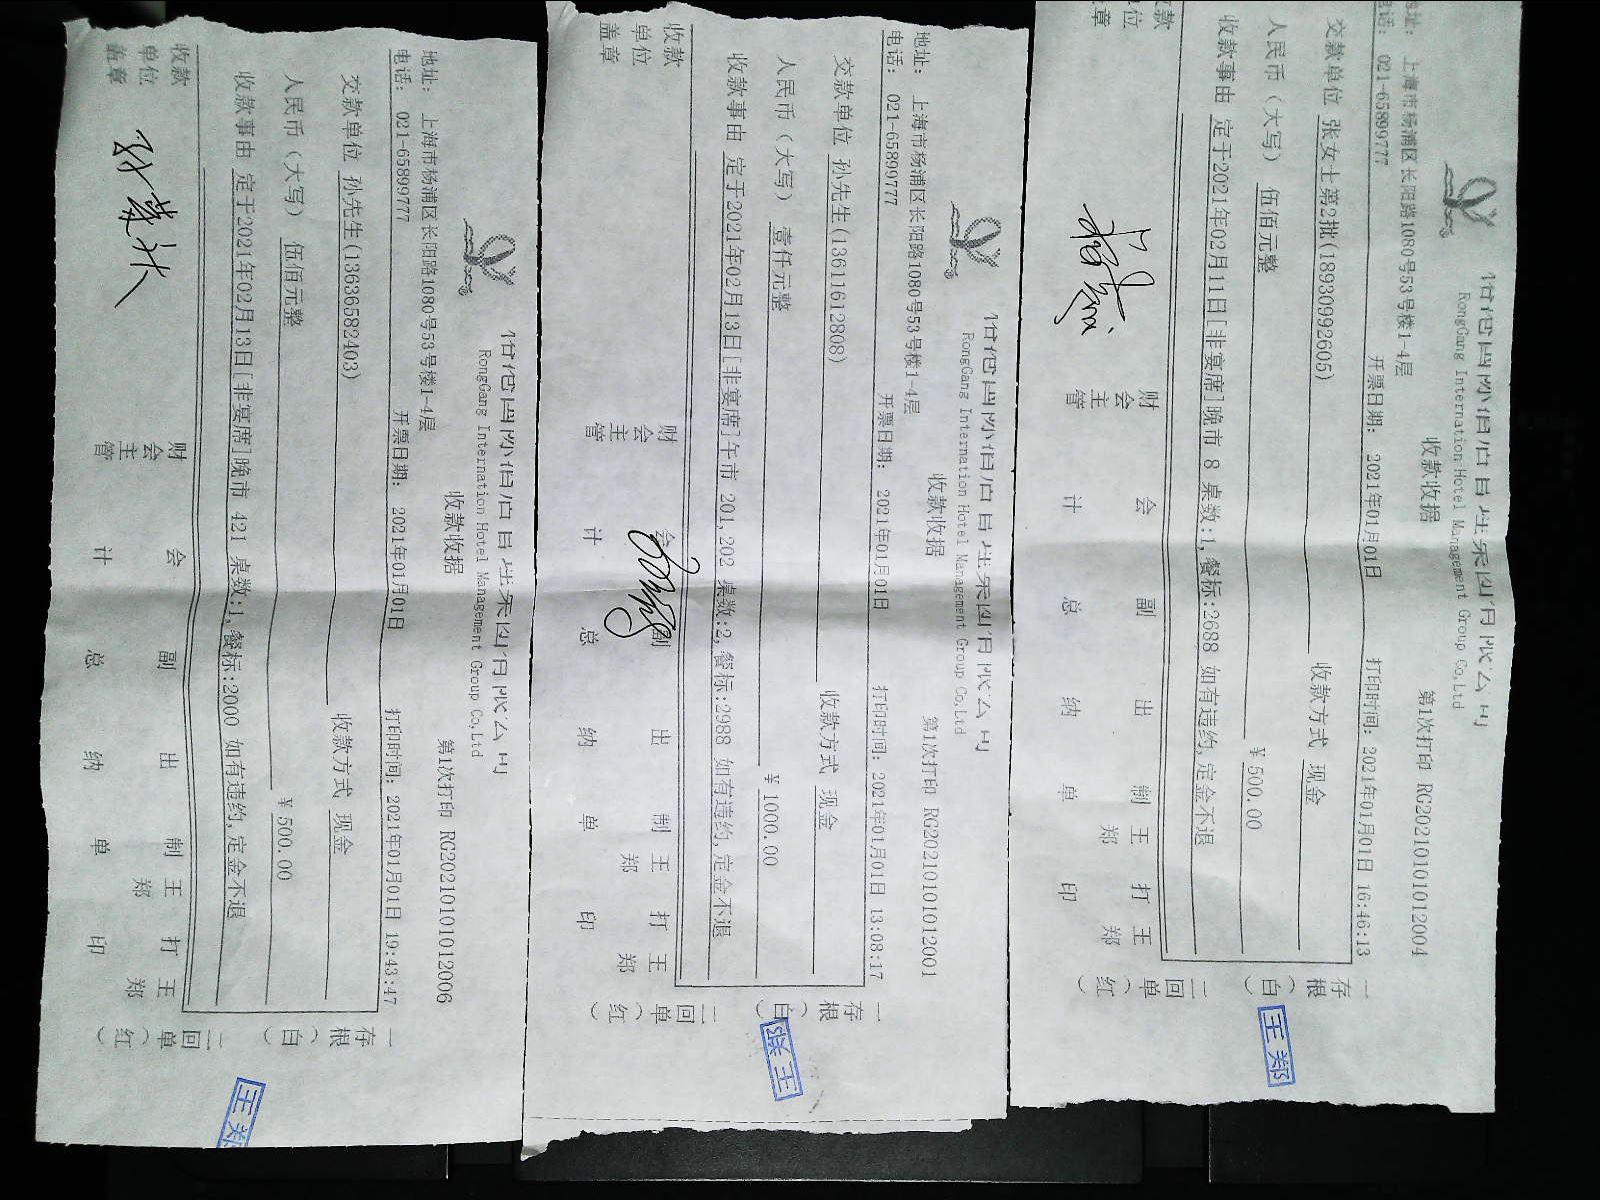 RongGang Internation Hotel Management Group Co,Ltd
收款收据
第1次打印 RG20210101012006
地址: 上海市杨浦区长阳路1080号53号楼1-4层
电话: 021-65899777
开票日期: 2021年01月01日
打印时间: 2021年01月01日 19:43:47
交款单位 孙先生(13636582403)
收款方式 现金
人民币(大写) 伍佰元整
¥500.00
收款事由 定于2021年02月13日[非宴席]晚市 421 桌数:1,餐标:2000 如有违约,定金不退
收款单位盖章
财会主管
会计
副总
出纳
制单
王郑
打印
王郑
一存根(白)
二回单(红)
王郑
RongGang Internation Hotel Management Group Co,Ltd
收款收据
第1次打印 RG20210101012001
地址: 上海市杨浦区长阳路1080号53号楼1-4层
电话: 021-65899777
开票日期: 2021年01月01日
打印时间: 2021年01月01日 13:08:17
交款单位 孙先生(13611612808)
收款方式 现金
人民币(大写) 壹仟元整
¥1000.00
收款事由 定于2021年02月13日[非宴席]午市 201,202 桌数:2,餐标:2988 如有违约,定金不退
收款单位盖章
财会主管
会计
副总
出纳
制单
王郑
打印
王郑
一存根(白)
二回单(红)
王郑
RongGang Internation Hotel Management Group Co,Ltd
收款收据
第1次打印 RG20210101012004
地址: 上海市杨浦区长阳路1080号53号楼1-4层
电话: 021-65899777
开票日期: 2021年01月01日
打印时间: 2021年01月01日 16:46:13
交款单位 张女士第2批(18930992605)
收款方式 现金
人民币(大写) 伍佰元整
¥500.00
收款事由 定于2021年02月11日[非宴席]晚市 8 桌数:1,餐标:2688 如有违约,定金不退
款位章
财会主管
会计
副总
出纳
制单
王郑
打印
王郑
一存根(白)
二回单(红)
王郑